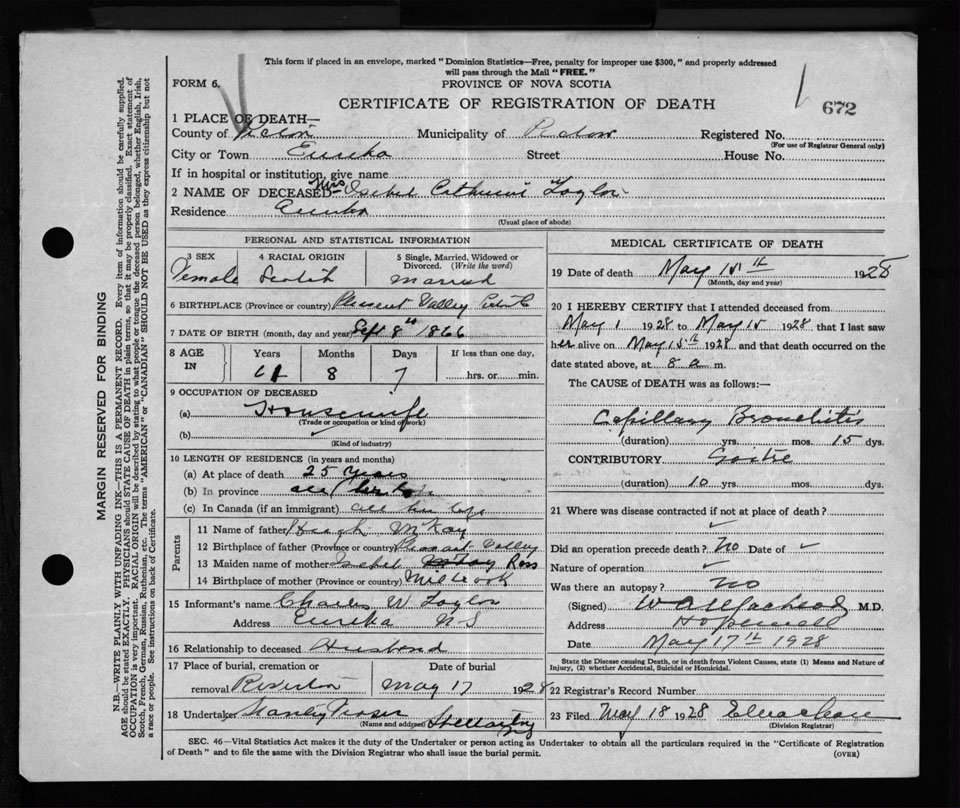 This form if placed in an envelope, marked "Dominion Statistics—Free, penalty for improper use $300," and properly addressed
will pass through the Mail "FREE."
FORM 6.
PROVINCE OF NOVA SCOTIA
CERTIFICATE OF REGISTRATION OF DEATH
672
1 PLACE OF DEATH—
County of Pictou Municipality of Pictou Registered No.
(For use of Registrar General only)
City or Town Eureka Street House No.
If in hospital or institution, give name
2 NAME OF DECEASED Mrs Isabel Catherine Taylor
Residence Eureka
(Usual place of abode)
PERSONAL AND STATISTICAL INFORMATION
3 SEX 4 RACIAL ORIGIN 5 Single, Married, Widowed or
Divorced. (Write the word)
Female Scotch Married
6 BIRTHPLACE (Province or country) Plesent Valley
7 DATE OF BIRTH (month, day and year) Sept 8th 1866
8 AGE IN Years Months Days If less than one day,
61 8 7 hrs. or min.
9 OCCUPATION OF DECEASED
(a) Housewife
(Trade or occupation or kind of work)
(b)
(Kind of industry)
10 LENGTH OF RESIDENCE (in years and months)
(a) At place of death 25 Years
(b) In province all her
(c) In Canada (if an immigrant) all her life
Parents
11 Name of father Hugh McKay
12 Birthplace of father (Province or country) Pleasant Valley
13 Maiden name of mother Isabel Ross
14 Birthplace of mother (Province or country) Millbrook
15 Informant's name Charles W Taylor
Address Eureka N-S
16 Relationship to deceased Husband
17 Place of burial, cremation or Date of burial
removal Riverton May 17 1928
18 Undertaker Stanley Fraser
(Name and address) Stellarton
MEDICAL CERTIFICATE OF DEATH
19 Date of death May 15th 1928
(Month, day and year)
20 I HEREBY CERTIFY that I attended deceased from
May 1 1928 to May 15 1928, that I last saw
her alive on May 15th 1928 and that death occurred on the
date stated above, at 8 a m.
The CAUSE of DEATH was as follows:—
Capillary Bronchitis
(duration) yrs. mos. 15 dys.
CONTRIBUTORY Goitre
(duration) 10 yrs. mos. dys.
21 Where was disease contracted if not at place of death?
Did an operation precede death? No Date of
Nature of operation
Was there an autopsy? No
(Signed) M.D.
Address Hopewell
Date May 17th 1928
State the Disease causing Death, or in death from Violent Causes, state (1) Means and Nature of
Injury, (2) whether Accidental, Suicidal or Homicidal.
22 Registrar's Record Number
23 Filed May 18 1928
(Division Registrar)
SEC. 46—Vital Statistics Act makes it the duty of the Undertaker or person acting as Undertaker to obtain all the particulars required in the "Certificate of Registration
of Death" and to file the same with the Division Registrar who shall issue the burial permit.
(OVER)
MARGIN RESERVED FOR BINDING
N.B.—WRITE PLAINLY WITH UNFADING INK—THIS IS A PERMANENT RECORD. Every item of information should be carefully supplied.
AGE should be stated EXACTLY. PHYSICIANS should STATE CAUSE OF DEATH in plain terms, so that it may be properly classified. Exact statement of
OCCUPATION is very important. RACIAL ORIGIN will be described by stating to what people or tongue the deceased person belonged, whether English, Irish,
Scotch, French, German, Russian, Ruthenian, etc. The terms "AMERICAN" or "CANADIAN" SHOULD NOT BE USED as they express citizenship but not
a race or people. See instructions on back of Certificate.